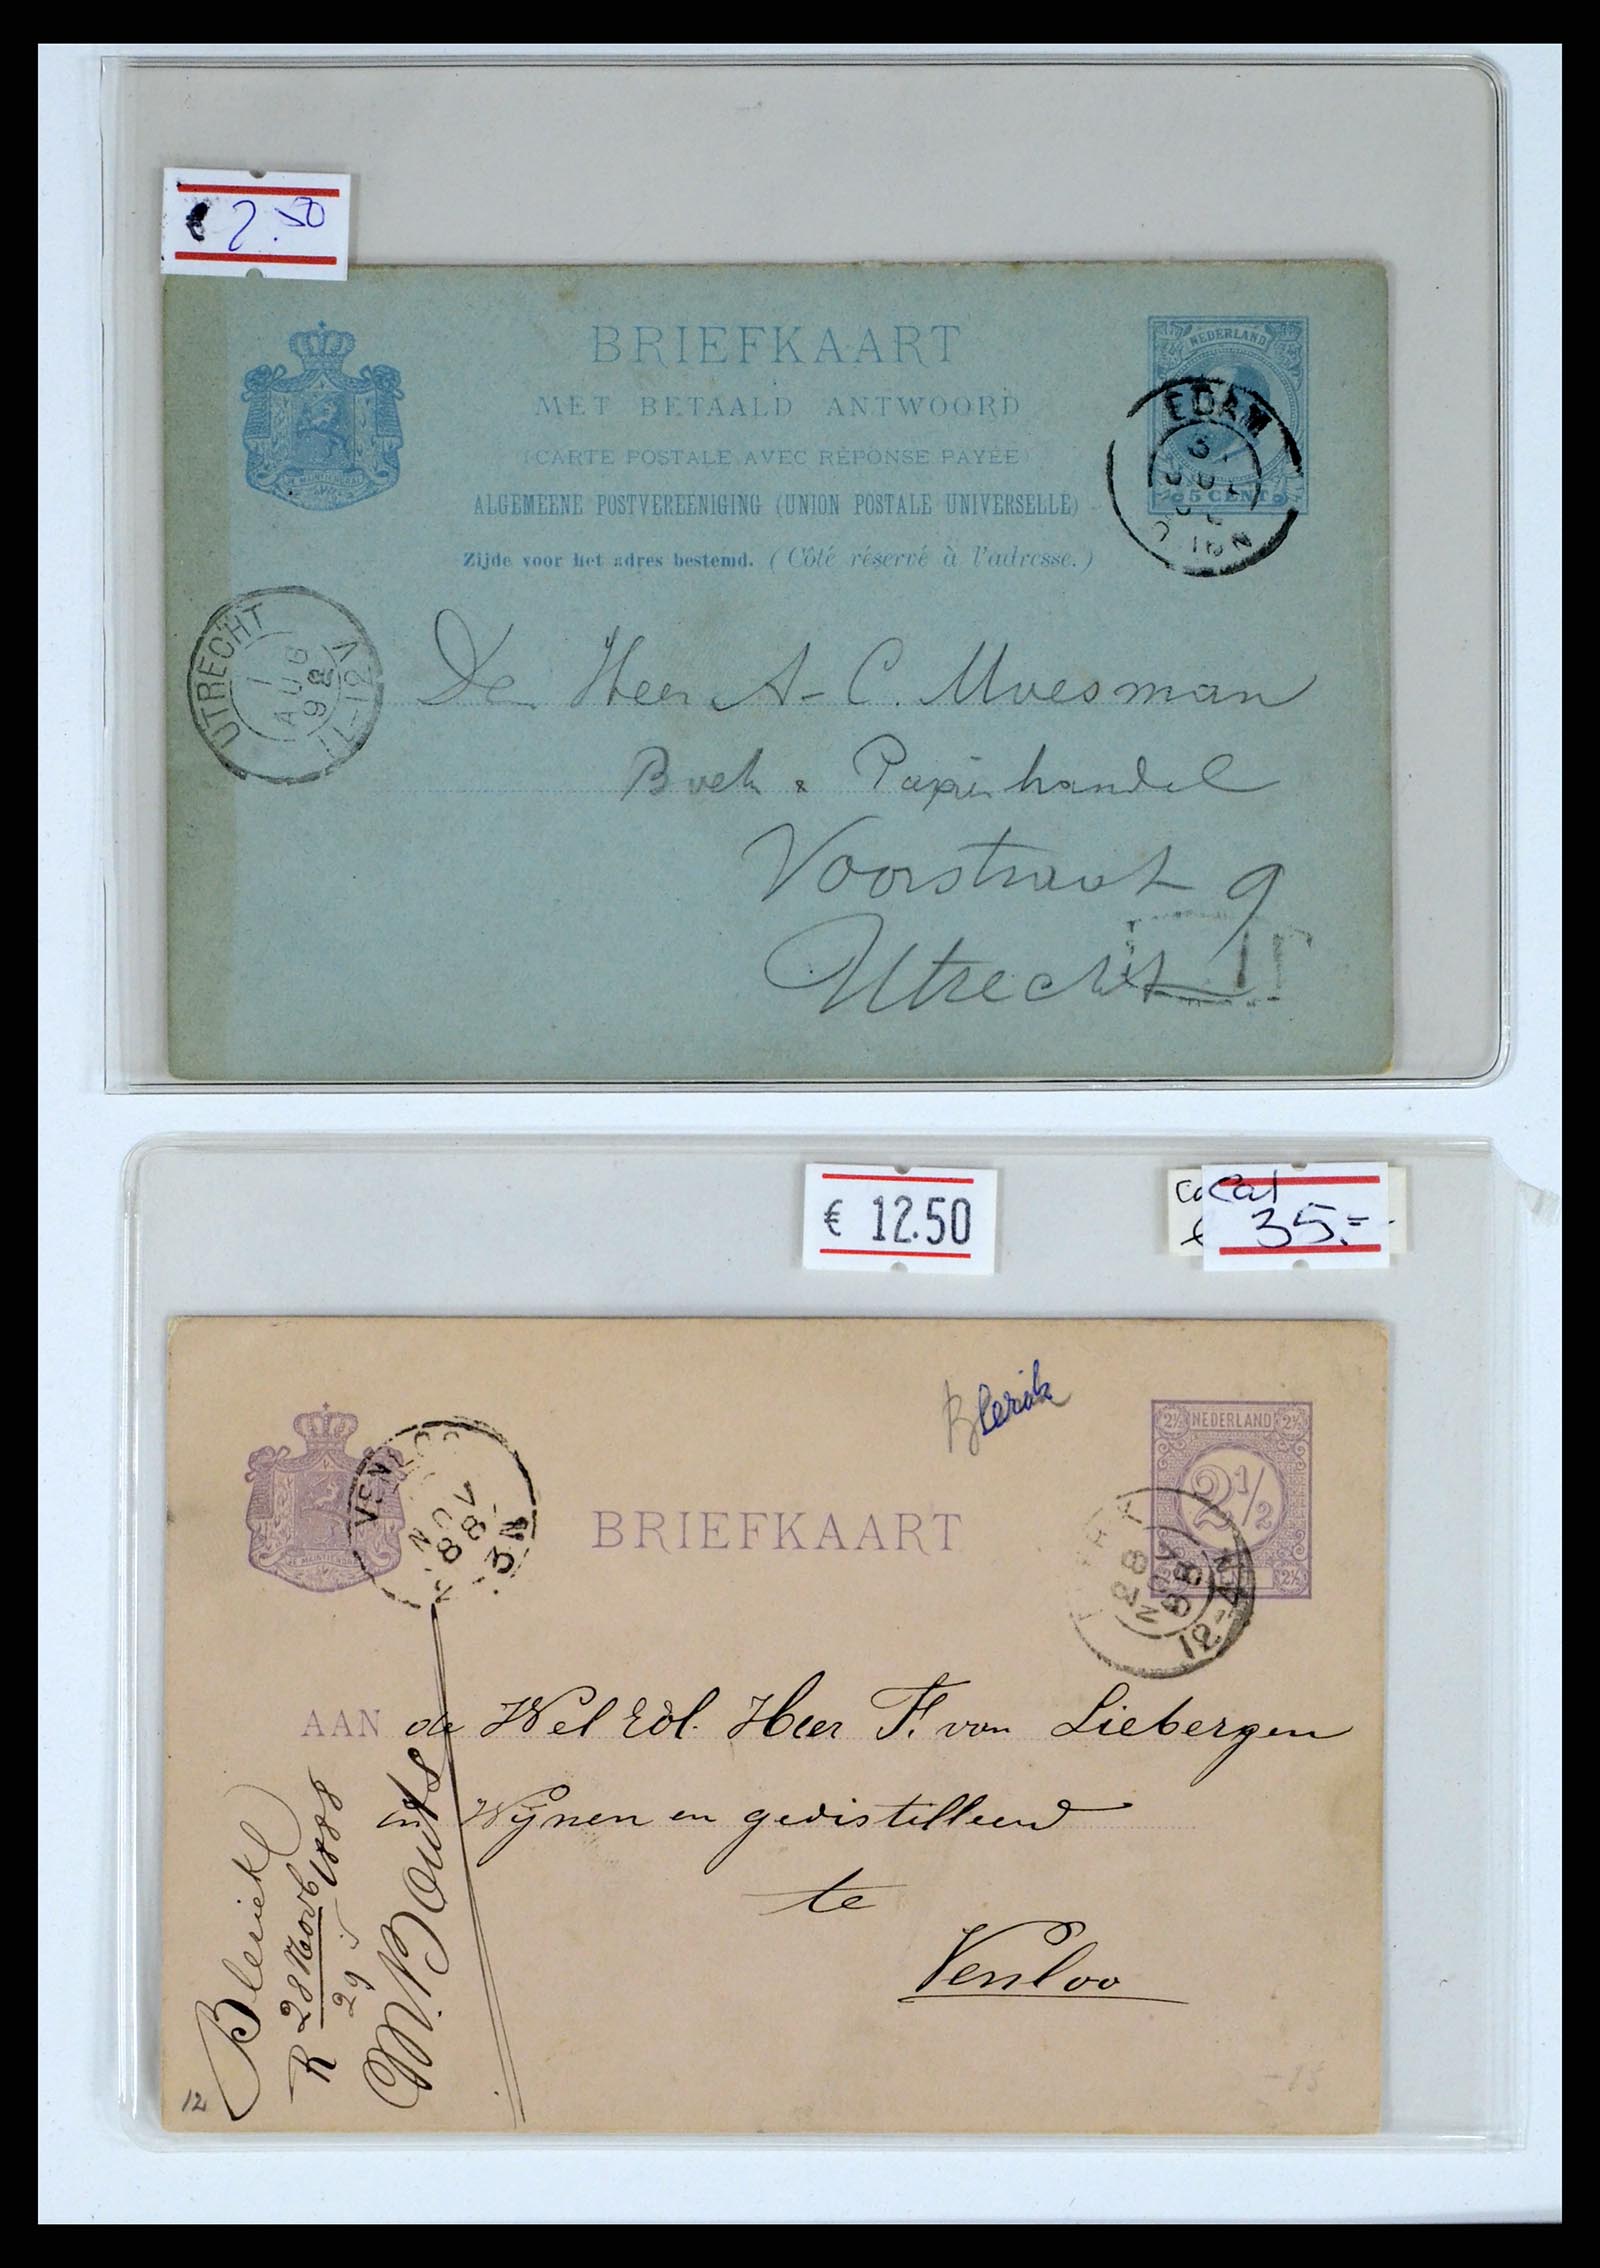 € 2.50
BRIEFKAART
MET BETAALD ANTWOORD
(CARTE POSTALE AVEC RÉPONSE PAYÉE)
ALGEMEENE POSTVEREENIGING (UNION POSTALE UNIVERSELLE)
Zijde voor het adres bestemd. (Côté réservé à l'adresse.)
JE MAINTIENDRAI
NEDERLAND
5 CENT
EDAM
UTRECHT
1
AUG
92
11-12V
De Heer A. C. Moesman
Boek & Papierhandel
Voorstraat 9
Utrecht
€ 12.50
Cat
35.=
Blerik
2½ NEDERLAND 2½
2½
CENT 2½
JE MAINTIENDRAI
BRIEFKAART
VENLOO
NOV
88
3N
28
NOV
88
12
AAN de Wel Edl. Heer F. van Liebergen
in Wijnen en gedistilleerd
te
Venloo
Blerick
R 28 Novb 1888
29
Bouts
12